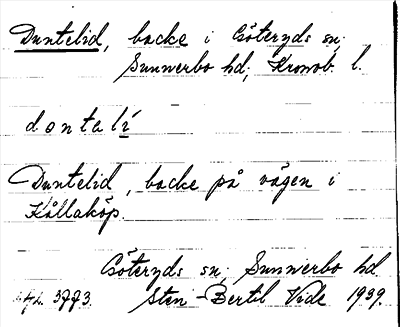 Duntelid, backe i Göteryds sn;
Sunnerbo hd; Kronob. l.
dontalí
Duntelid, backe på vägen i
Källaköp.
Göteryds sn; Sunnerbo hd
3773. Sten-Bertil Vide 1939.